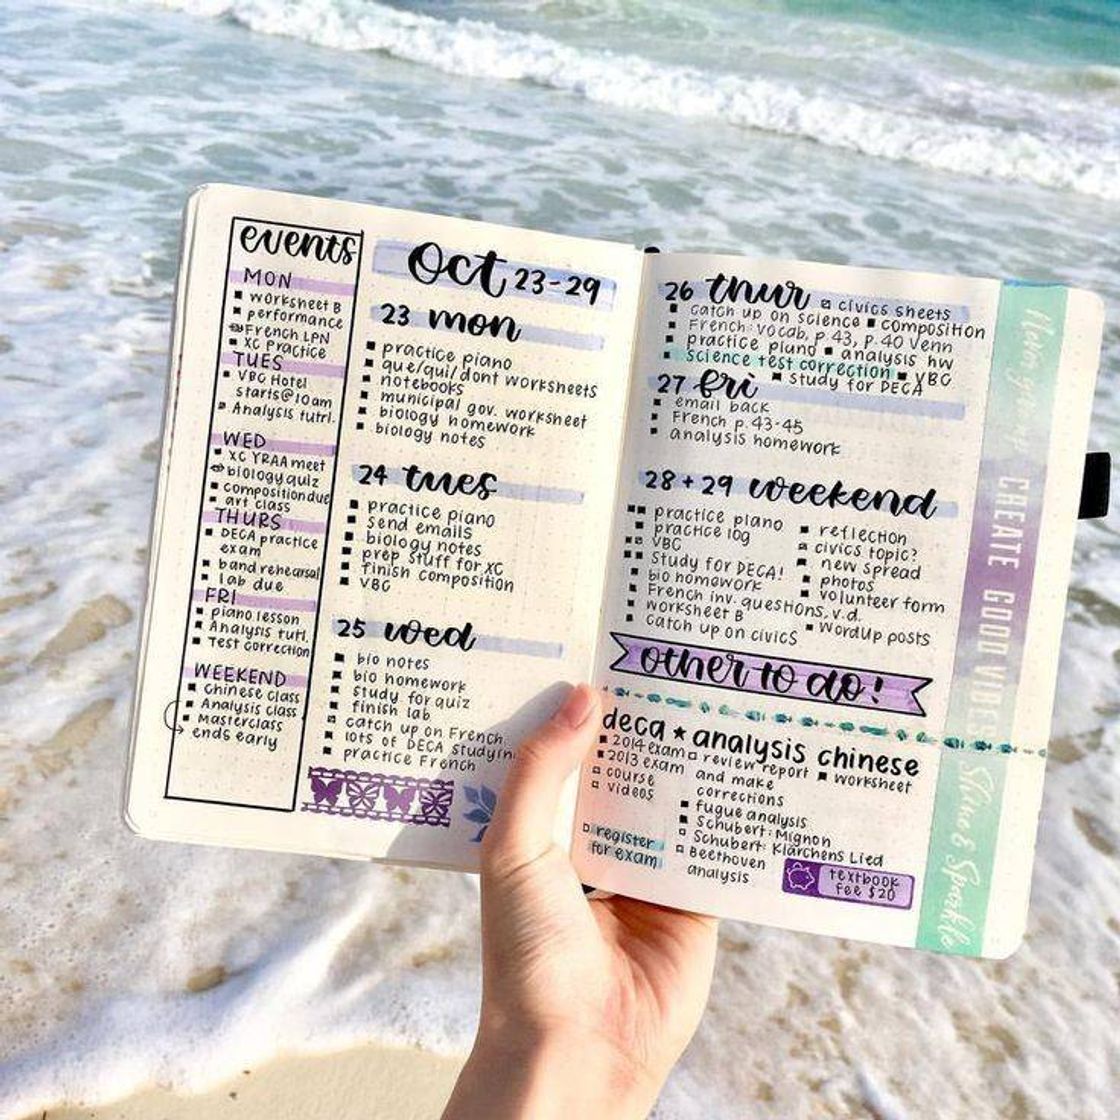 events
MON
worksheet B
performance
French LPN
XC Practice
TUES
VBC Hotel
starts@10am
Analysis tutrl.
WED
XC YRAA meet
biology quiz
composition due
art class
THURS
DECA practice
exam
band rehearsal
lab due
FRI
piano lesson
Analysis tutrl.
Test correction
WEEKEND
chinese class
Analysis class
masterclass
ends early
Oct 23-29
23 mon
practice piano
que/qui/dont worksheets
notebooks
municipal gov. worksheet
biology homework
biology notes
24 tues
practice piano
send emails
biology notes
prep stuff for XC
finish composition
VBC
25 wed
bio notes
bio homework
study for quiz
finish lab
catch up on French
lots of DECA studyin
practice French
26 thur civics sheets
catch up on science composition
French: vocab, p.43, p.40 Venn
practice piano analysis hw
science test correction VBC
study for DECA
27 fri
email back
French p.43-45
analysis homework
28+29 weekend
practice piano
practice log
VBC
Study for DECA!
bio homework
French inv. questions, v.d.
worksheet B
catch up on civics
reflection
civics topic?
new spread
photos
volunteer form
Wordup posts
other to do!
deca ★ analysis chinese
2014 exam
2013 exam
course
videos
register
for exam
review report
and make
corrections
fugue analysis
Schubert: Mignon
Schubert: Klärchens Lied
Beethoven
analysis
worksheet
textbook
fee $20
CREATE GOOD
Shine & Sparkle